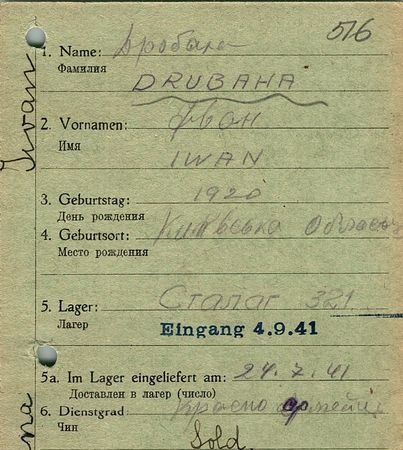 516
1. Name: Дробаха
Фамилия
DRUBAHA
2. Vornamen: Іван
Имя
IWAN
3. Geburtstag: 1920
День рождения
4. Geburtsort: Київська
Место рождения
5. Lager: Сталаг 321
Лагерь
Eingang 4.9.41
5a. Im Lager eingeliefert am: 24.7.41
Доставлен в лагерь (число)
6. Dienstgrad: Красно
Чин
Sold.
Iwan